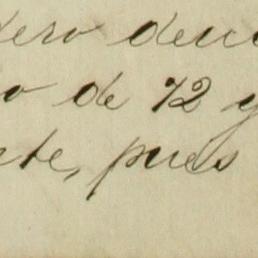 dero deu
o de 72 y
te, pues